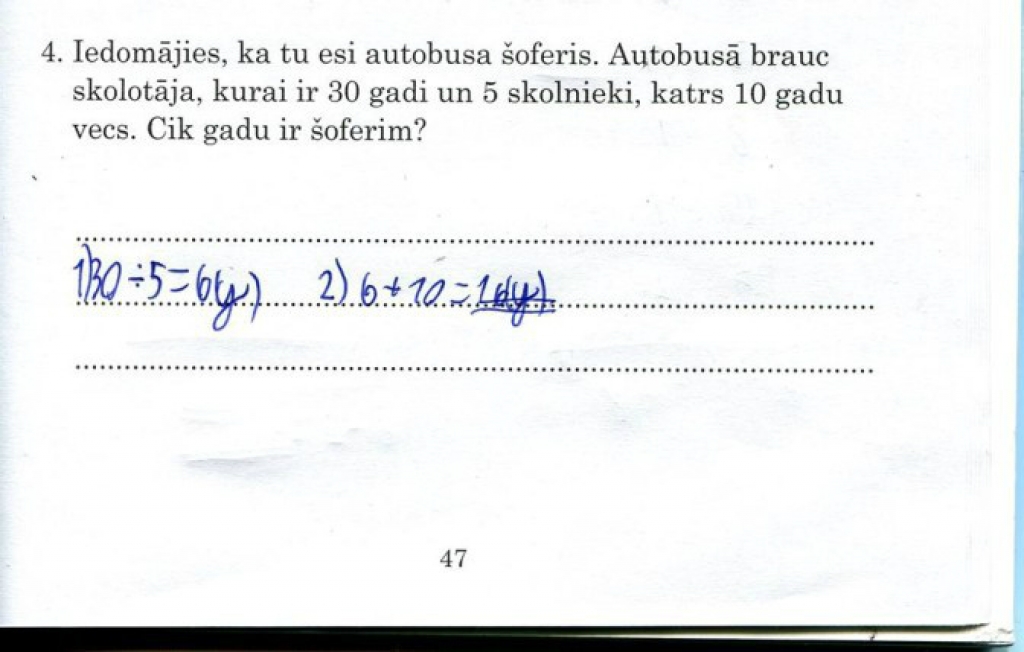 4. Iedomājies, ka tu esi autobusa šoferis. Autobusā brauc
skolotāja, kurai ir 30 gadi un 5 skolnieki, katrs 10 gadu
vecs. Cik gadu ir šoferim?
1) 30 ÷ 5 = 6 (g) 2) 6 + 10 = 16 (g)
47